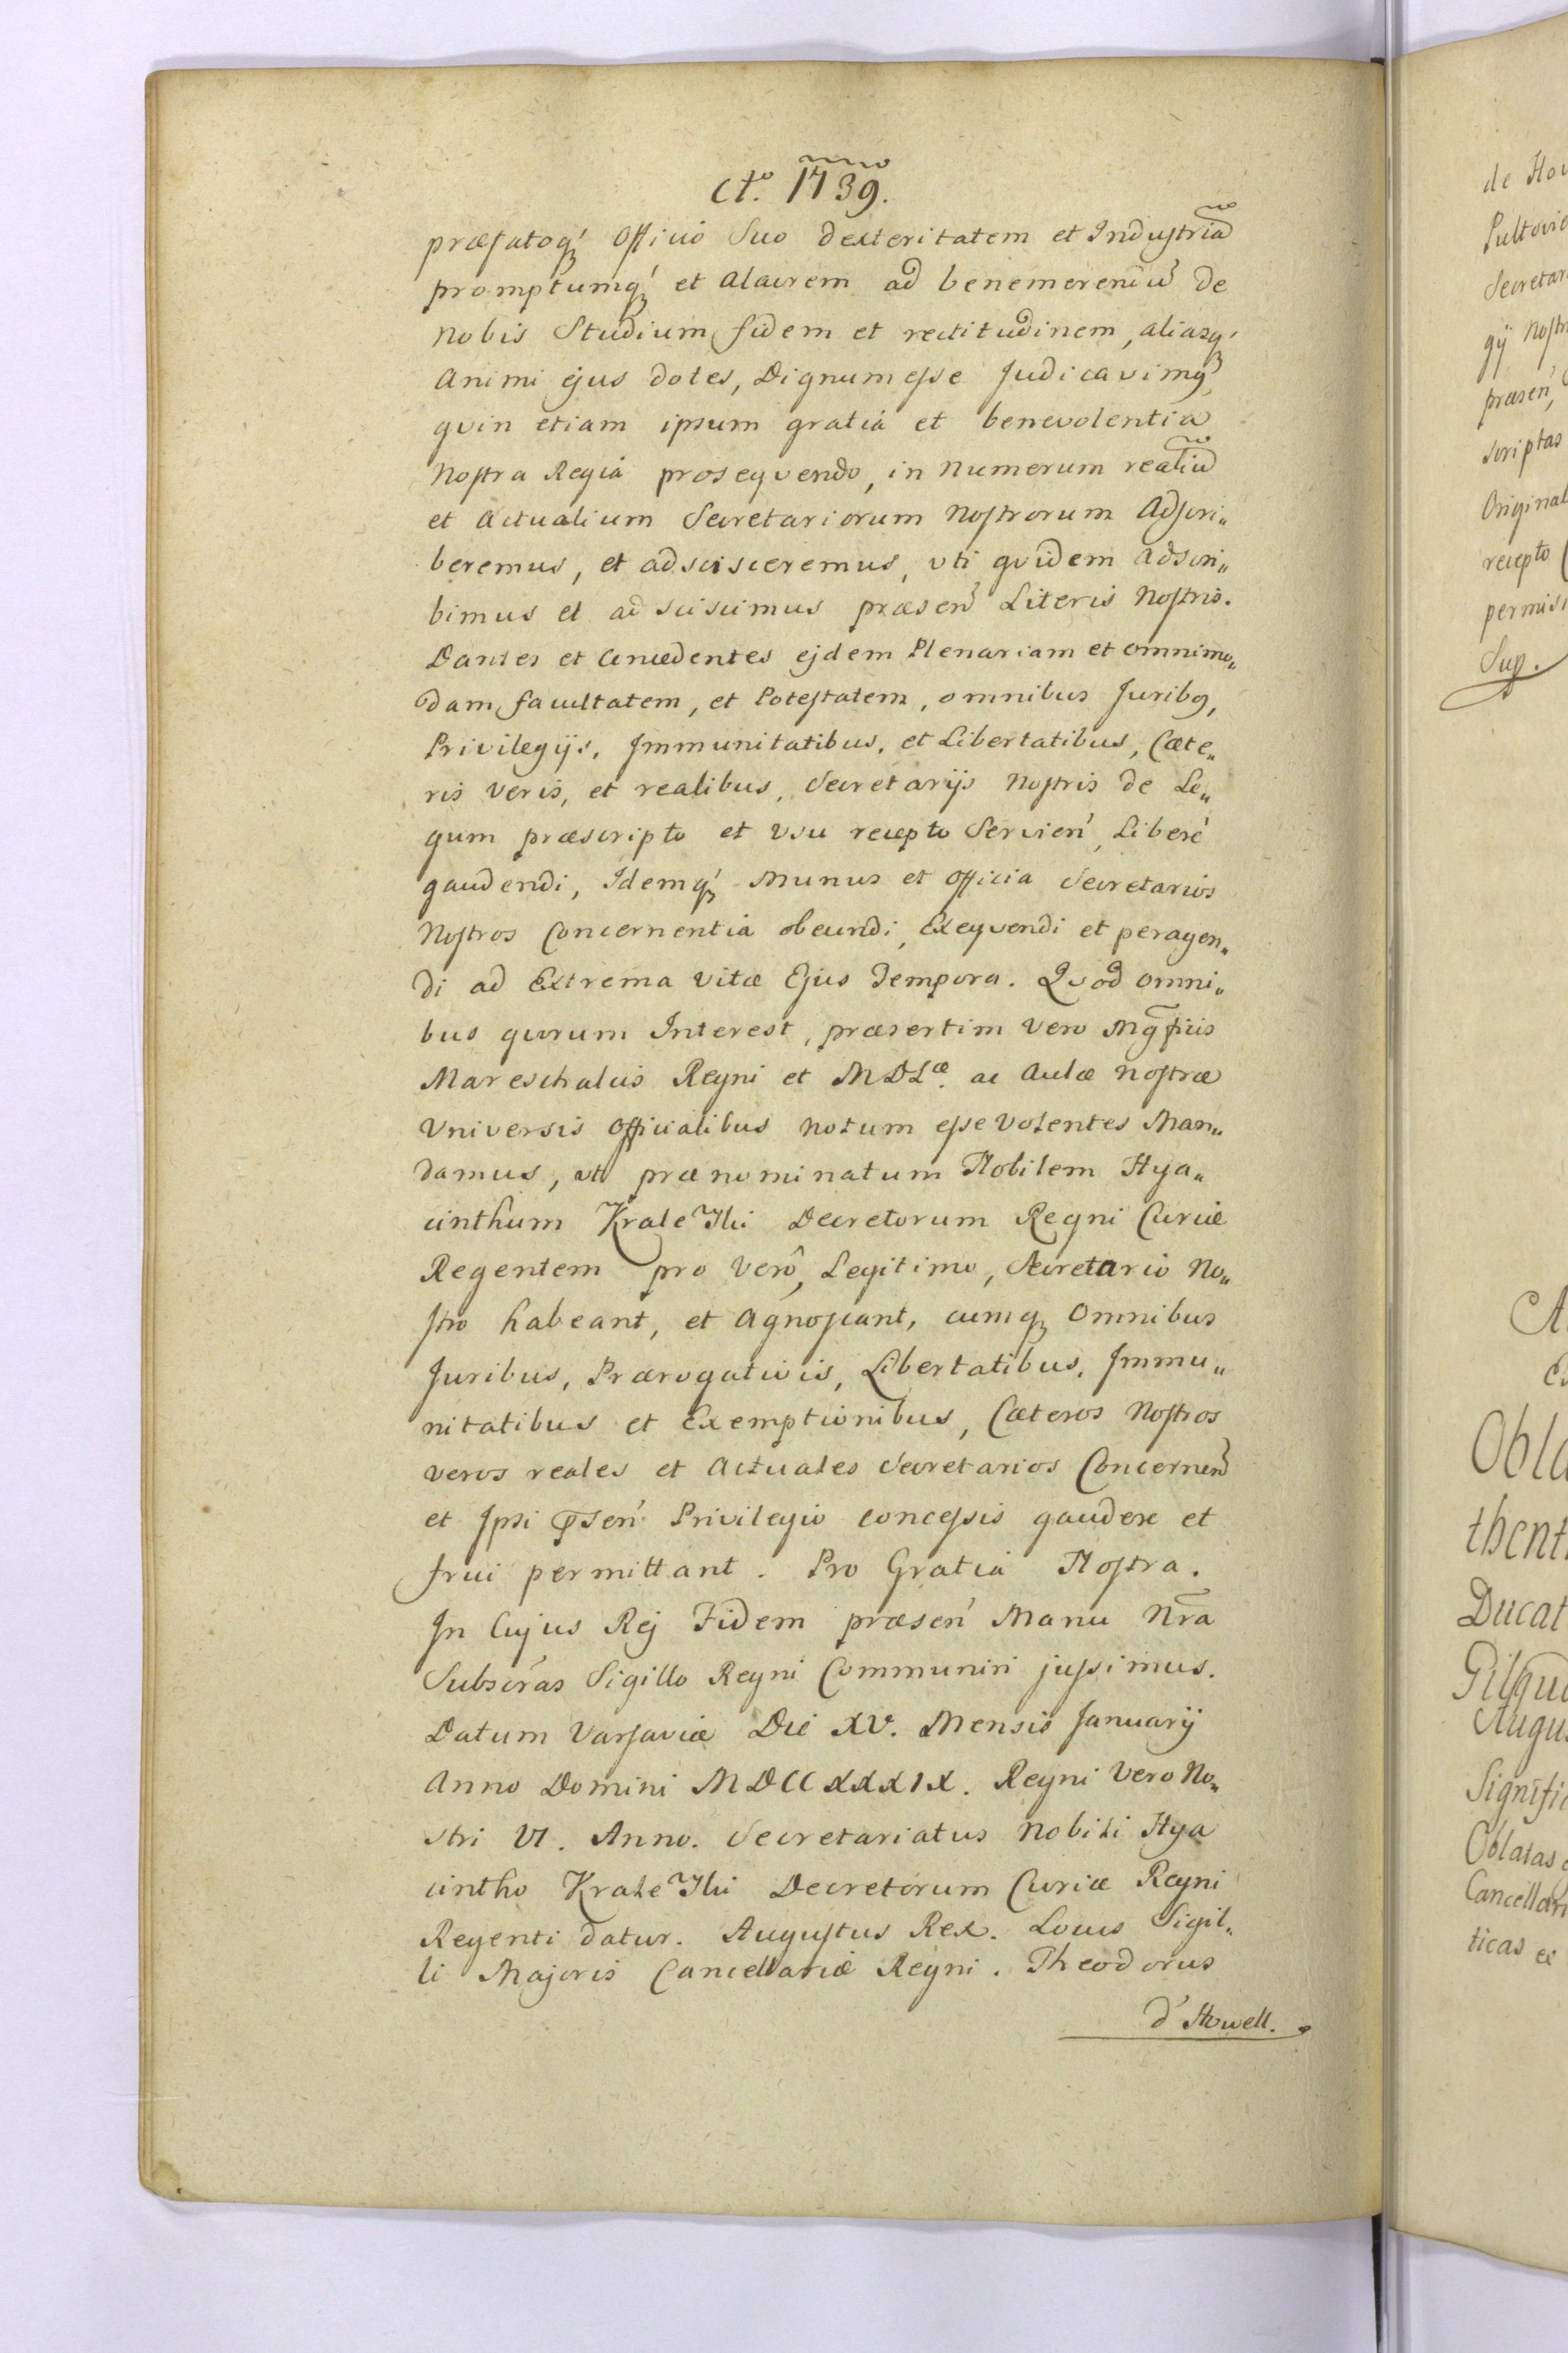 Ao. 1739.
præfatoq' Officio Suo dexteritatem et Industriã
promptumq' et alacrem ad benemerendũ de
Nobis Studium fidem et rectitudinem, aliasq'
animi ejus dotes, Dignum esse Judicavimq
qvin etiam ipsum gratiâ et benevolentia
Nostra Regiâ proseqvendo, in Numerum realiũ
et Actualium Secretariorum Nostrorum Adscri„
beremus, et adscisceremus, vti qvidem adscri„
bimus et ad sciscimus præsen̄ Literis Nostris.
Dantes et Concedentes ejdem Plenariam et omnimo„
dam facultatem, et Potestatem, omnibus Juribq,
Privilegijs, Immunitatibus, et Libertatibus, Cæte„
ris Veris, et realibus, Secretarijs Nostris de Le„
gum præscripto et Vsu recepto Servien', Liberè
gaudendi, Idemq' Munus et Officia Secretarios
Nostros Concernentia obeundi, Exeqvendi et peragen„
di ad Extrema vitæ Ejus Tempora. Qvod omni„
bus qvorum Interest, præsertim Vero Mg̃ficis
Mareschalcis Regni et MDLæ. ac Aulæ Nostræ
Vniversis Officialibus notum esse Volentes Man„
damus, vt prænominatum Nobilem Hya„
cinthum Krale Ilii Decretorum Regni Curiæ
Regentem pro Verô, Legitimo, Secretario No„
stro habeant, et agnoscant, cumq Omnibus
Juribus, Prærogativis, Libertatibus, Immu„
nitatibus et Exemptionibus, Cæteros Nostros
veros reales et Actuales Secretarios Concernen̄
et Ipsi p̃sen' Privilegio concessis gaudere et
frui permittant. Pro Gratia Nostra.
In Cujus Rej Fidem præsen' Manu Nr̃a
Subscr̃as Sigillo Regni Communiri jussimus.
Datum Varsaviæ Die XV. Mensis Januarij
Anno Domini MDCCXXXIX. Regni Vero No„
stri VI. Anno. Secretariatus Nobili Hya
cintho Krale Ilii Decretorum Curiæ Regni
Regenti datur. Augustus Rex. Locus Sigil„
li Majoris Cancellariæ Regni. Theodorus
d'Howell.
de Ho
Pultovie
Secretar
gij Nostr
præsen'
scriptas
Original
recepto
permisi
Sup.
Obla
thent
Ducat
Augu
Signifi
Oblatas
Cancellari
ticas ex